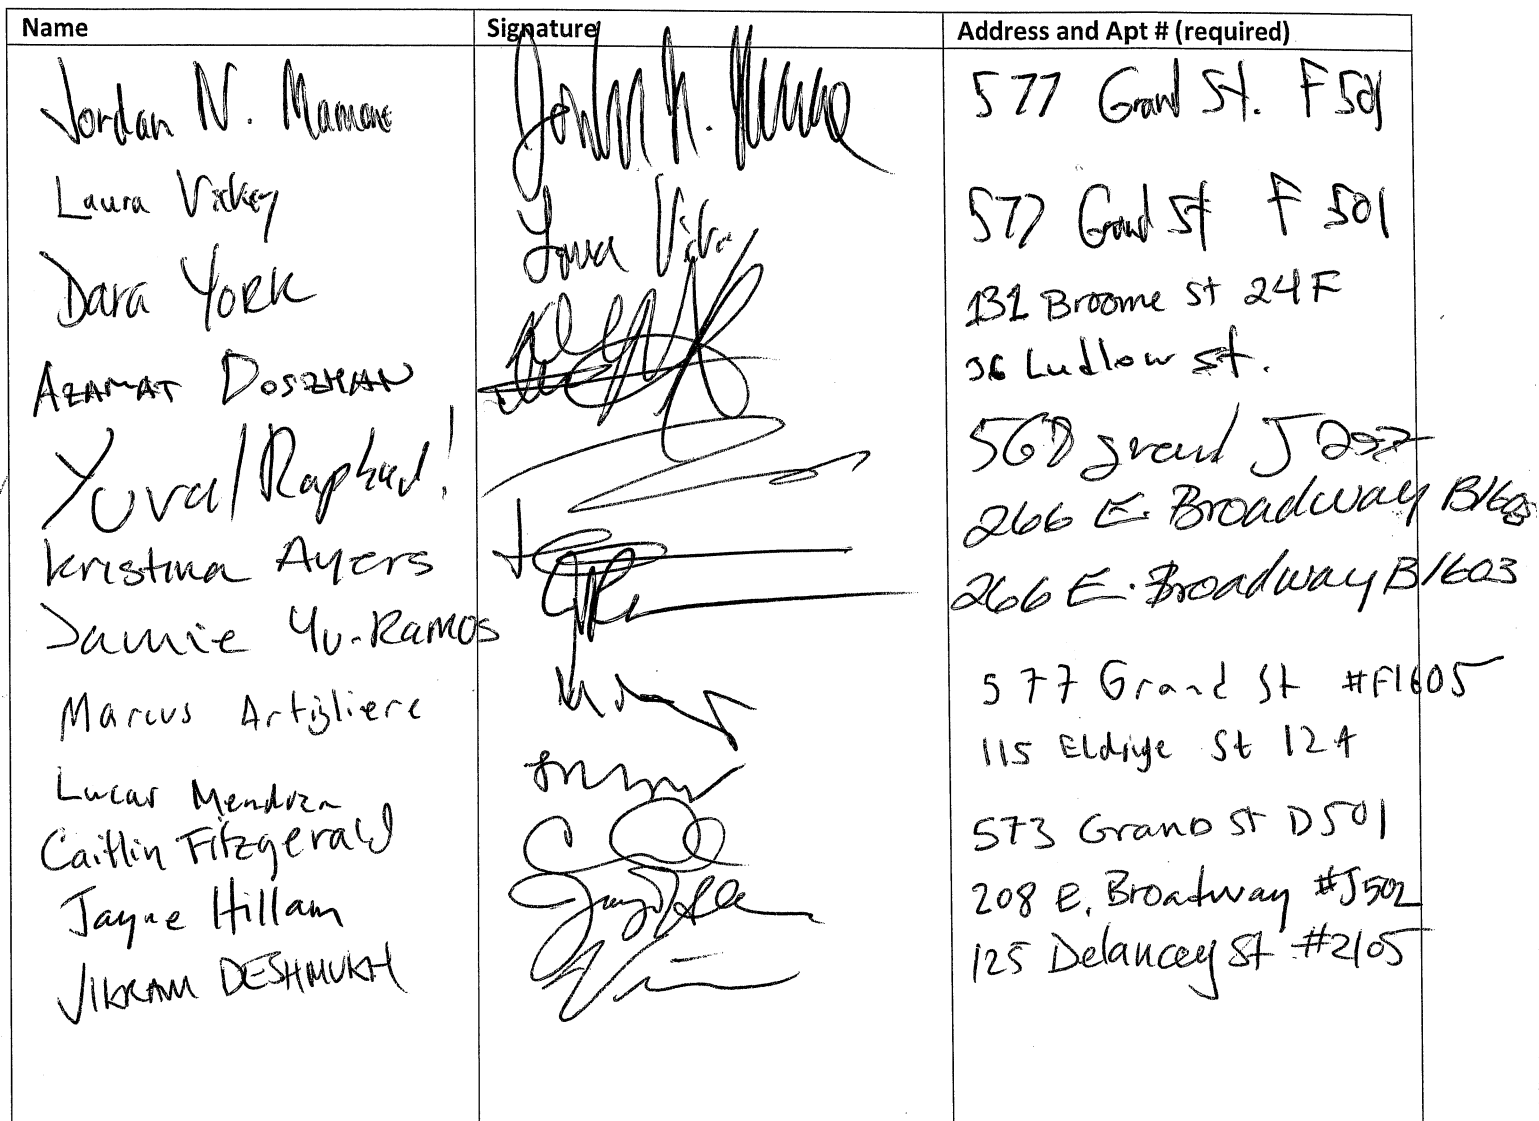 Name Signature Address and Apt # (required)
Jordan N. Mamone 577 Grand St. F 501
Laura Vickey 577 Grand St F 501
Dara York 131 Broome St 24F
Azamat Doszhan 36 Ludlow St.
Yuval Raphael! 568 grand J
Kristina Ayers 266 E. Broadway B1603
Jamie Yu-Ramos 266 E. Broadway B1603
Marcus Artigliere 577 Grand St #F1605
Lucas Mendoza 115 Eldrige St 12A
Caitlin Fitzgerald 573 Grand St D501
Jayne Hillam 208 E. Broadway #J502
VIKRAM DESHMUKH 125 Delancey St #2105